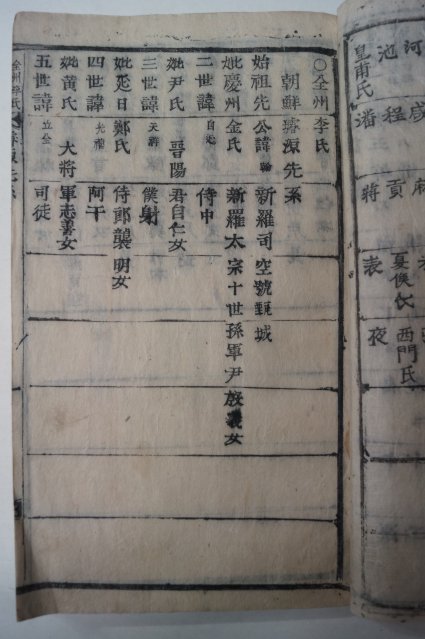 河 咸
池 程 貢 夏侯氏 西門氏
皇甫氏 潘 蔣 表 夜
○全州李氏
朝鮮璿源先系
始祖先公諱翰 新羅司空號甄城
妣慶州金氏 新羅太宗十世孫軍尹殷義女
二世諱自延 侍中
妣尹氏 晋陽君自仁女
三世諱天祥 僕射
妣延日鄭氏 侍郎襲明女
四世諱光禧 阿干
妣黃氏 大將軍志善女
五世諱立全 司徒
全州李氏